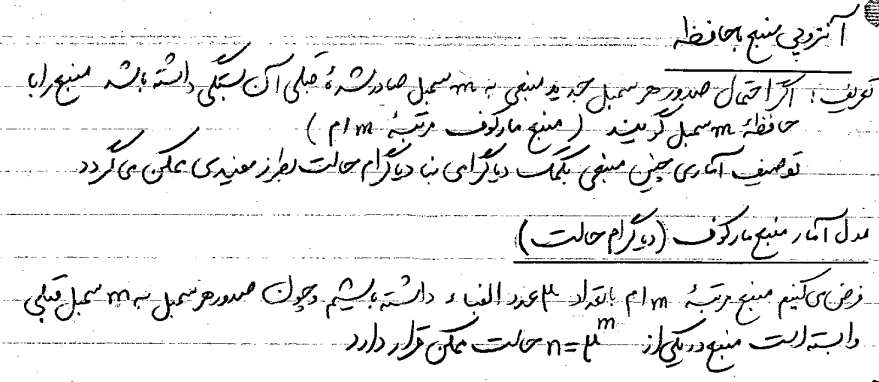 آنتروپی منبع با حافظه
تعریف: اگر احتمال صدور هر سمبل جدید منبعی به m سمبل صادر شدهٔ قبلی آن بستگی داشته باشد منبع را با
حافظهٔ m سمبل گویند (منبع مارکوف مرتبهٔ m ام)
توصیف آماری چنین منبعی بکمک دیاگرامی بنا دیاگرام حالت بطرز مفیدی ممکن می گردد
مدل آمار منبع مارکوف (دیاگرام حالت)
فرض می کنیم منبع مرتبهٔ m ام با تعداد μ عدد الفباء داشته باشیم و چون صدور هر سمبل به m سمبل قبلی
وابسته است منبع در یکی از n = μ^m حالت ممکن قرار دارد